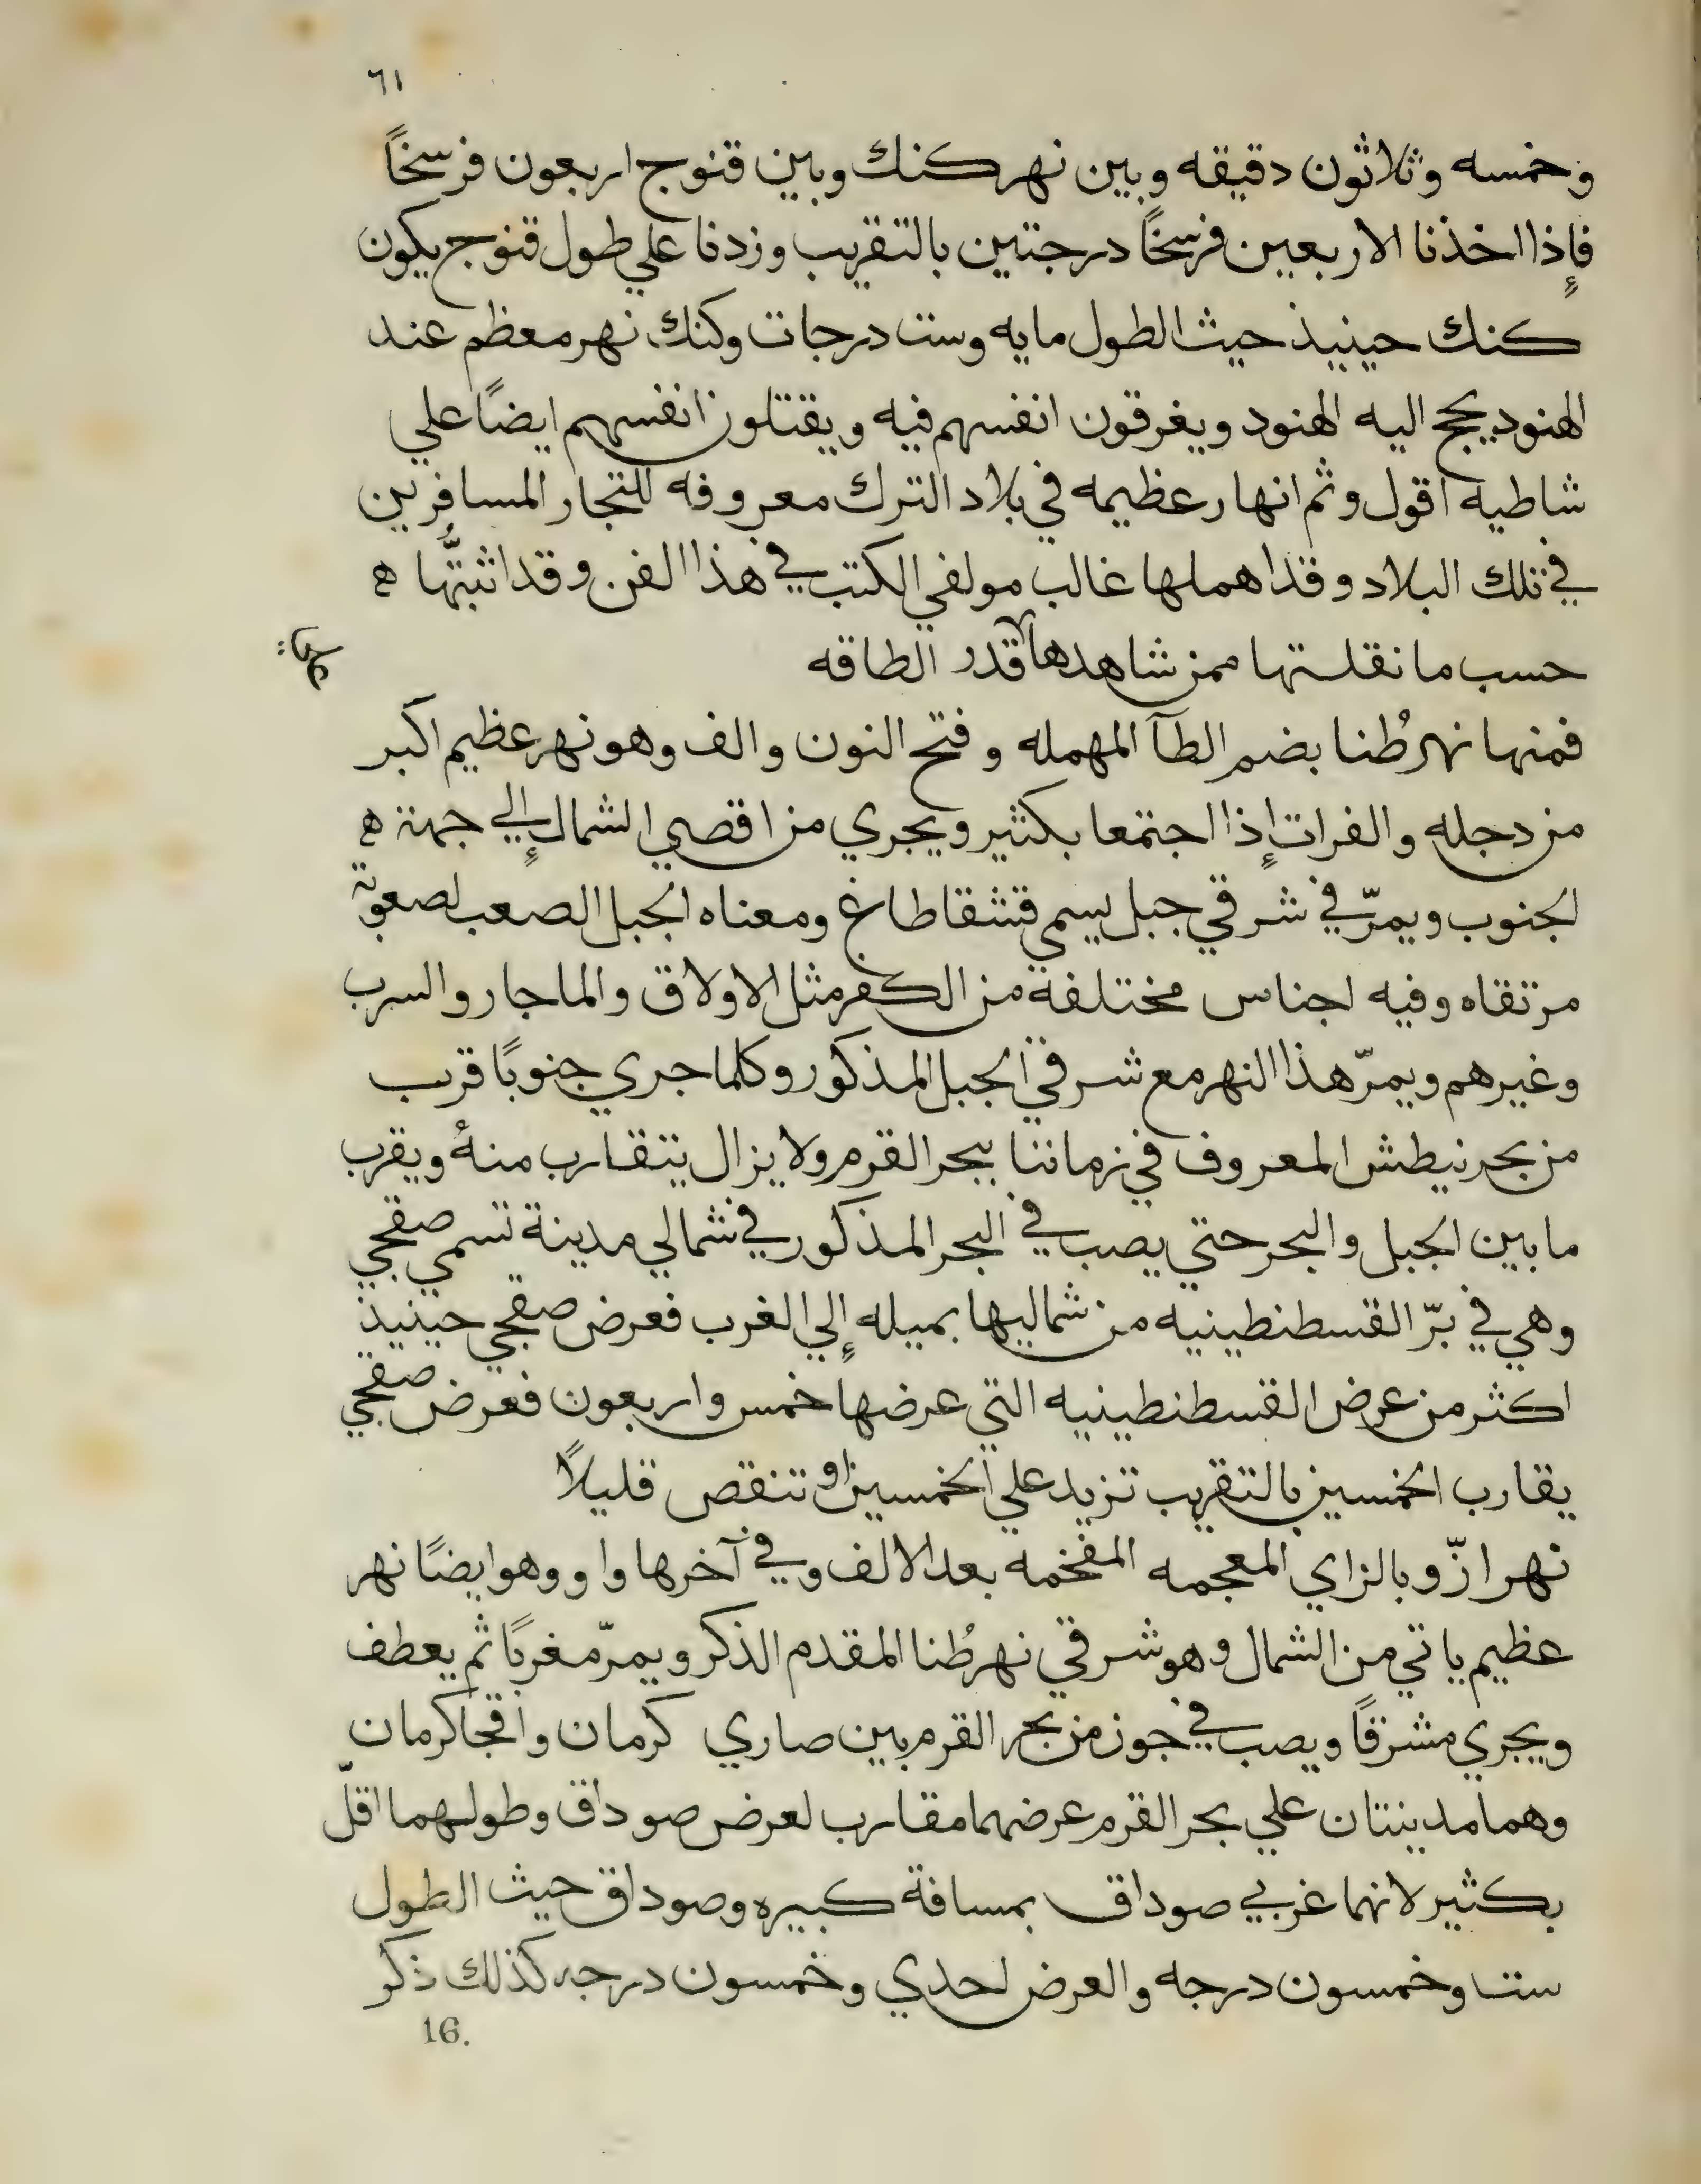 ٦١
وخمسه وثلاثون دقيقه وبين نهر كنك وبين قنوج اربعون فرسخاً
فإذا اخذنا الاربعين فرسخاً درجتين بالتقريب وزدنا علي طول قنوج يكون
كنك حينيذ حيث الطول مايه وست درجات وكنك نهر معظم عند
الهنود يحج اليه الهنود ويغرقون انفسهم فيه ويقتلون انفسهم ايضاً علي
شاطيه اقول وثم انهار عظيمه في بلاد الترك معروفه للتجار المسافرين
في تلك البلاد وقد اهملها غالب مولفي الكتب في هذا الفن وقد اثبتُّها ه
حسب ما نقلتها ممن شاهدها قدر الطاقه
فمنها نهر طُنا بضم الطآ المهمله وفتح النون والف وهو نهر عظيم اكبر
من دجله والفرات إذا اجتمعا بكثير ويجري من اقصي الشمال إلي جهة ه
الجنوب ويمرّ في شرقي جبل يسمي قشقاطاغ ومعناه الجبل الصعب لصعوبة
مرتقاه وفيه اجناس مختلفة من الكفر مثل الاولاق والماجار والسرب
وغيرهم ويمرّ هذا النهر مع شرقي الجبل المذكور وكلما جري جنوباً قرب
من بحر نيطش المعروف في زماننا ببحر القرم ولا يزال يتقارب منهُ ويقرب
ما بين الجبل والبحر حتي يصب في البحر المذكور في شمالي مدينة تسمي صقجي
وهي في برّ القسطنطينيه من شماليها بميله إلي الغرب فعرض صقجي حينيذ
اكثر من عرض القسطنطينيه التي عرضها خمس واربعون فعرض صقجي
يقارب الخمسين بالتقريب تزيد علي الخمسين او تنقص قليلاً
نهر ازّو بالزاي المعجمه المفخمه بعد الالف وفي آخرها واو وهو ايضاً نهر
عظيم ياتي من الشمال وهو شرقي نهر طُنا المقدم الذكر ويمرّ مغرباً ثم يعطف
ويجري مشرقاً ويصب في جون من بحر القرم بين صاري كرمان واقجا كرمان
وهما مدينتان علي بحر القرم عرضهما مقارب لعرض صوداق وطولهما اقلّ
بكثير لانهما غربي صوداق بمسافة كبيره وصوداق حيث الطول
ست وخمسون درجه والعرض احدي وخمسون درجه كذلك ذكر
16.